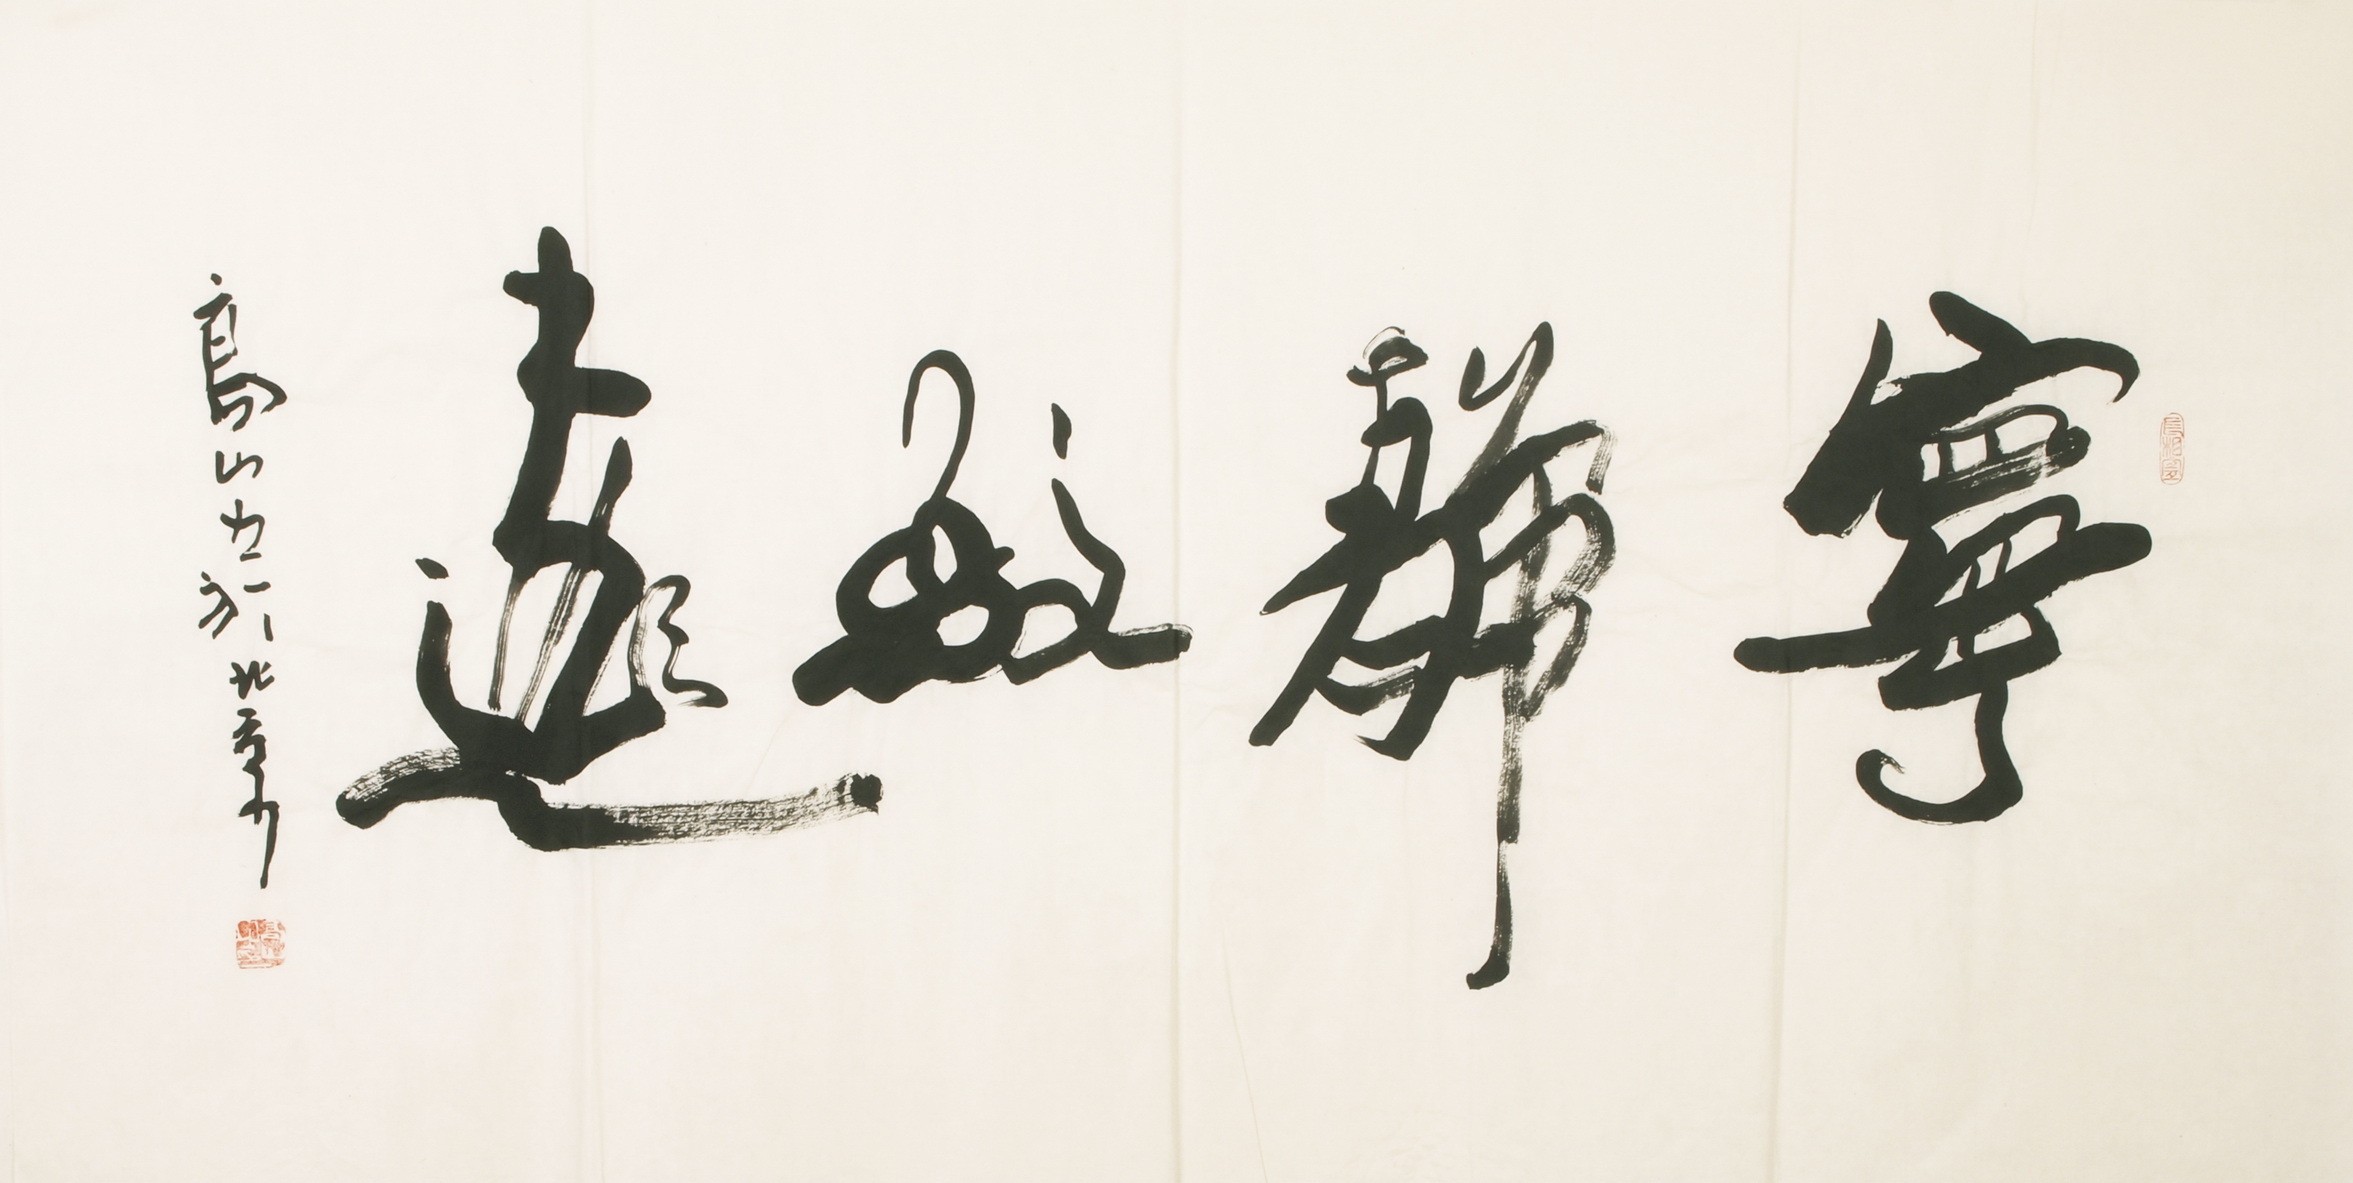 寧靜致遠
高山書於北京